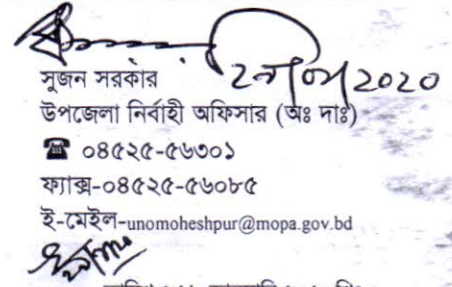 সুজন সরকার
2020
উপজেলা নির্বাহী অফিসার (অঃ দাঃ)
☎ ০৪৫২৫-৫৬৩০১
ফ্যাক্স-০৪৫২৫-৫৬০৮৫
ই-মেইল-unomoheshpur@mopa.gov.bd